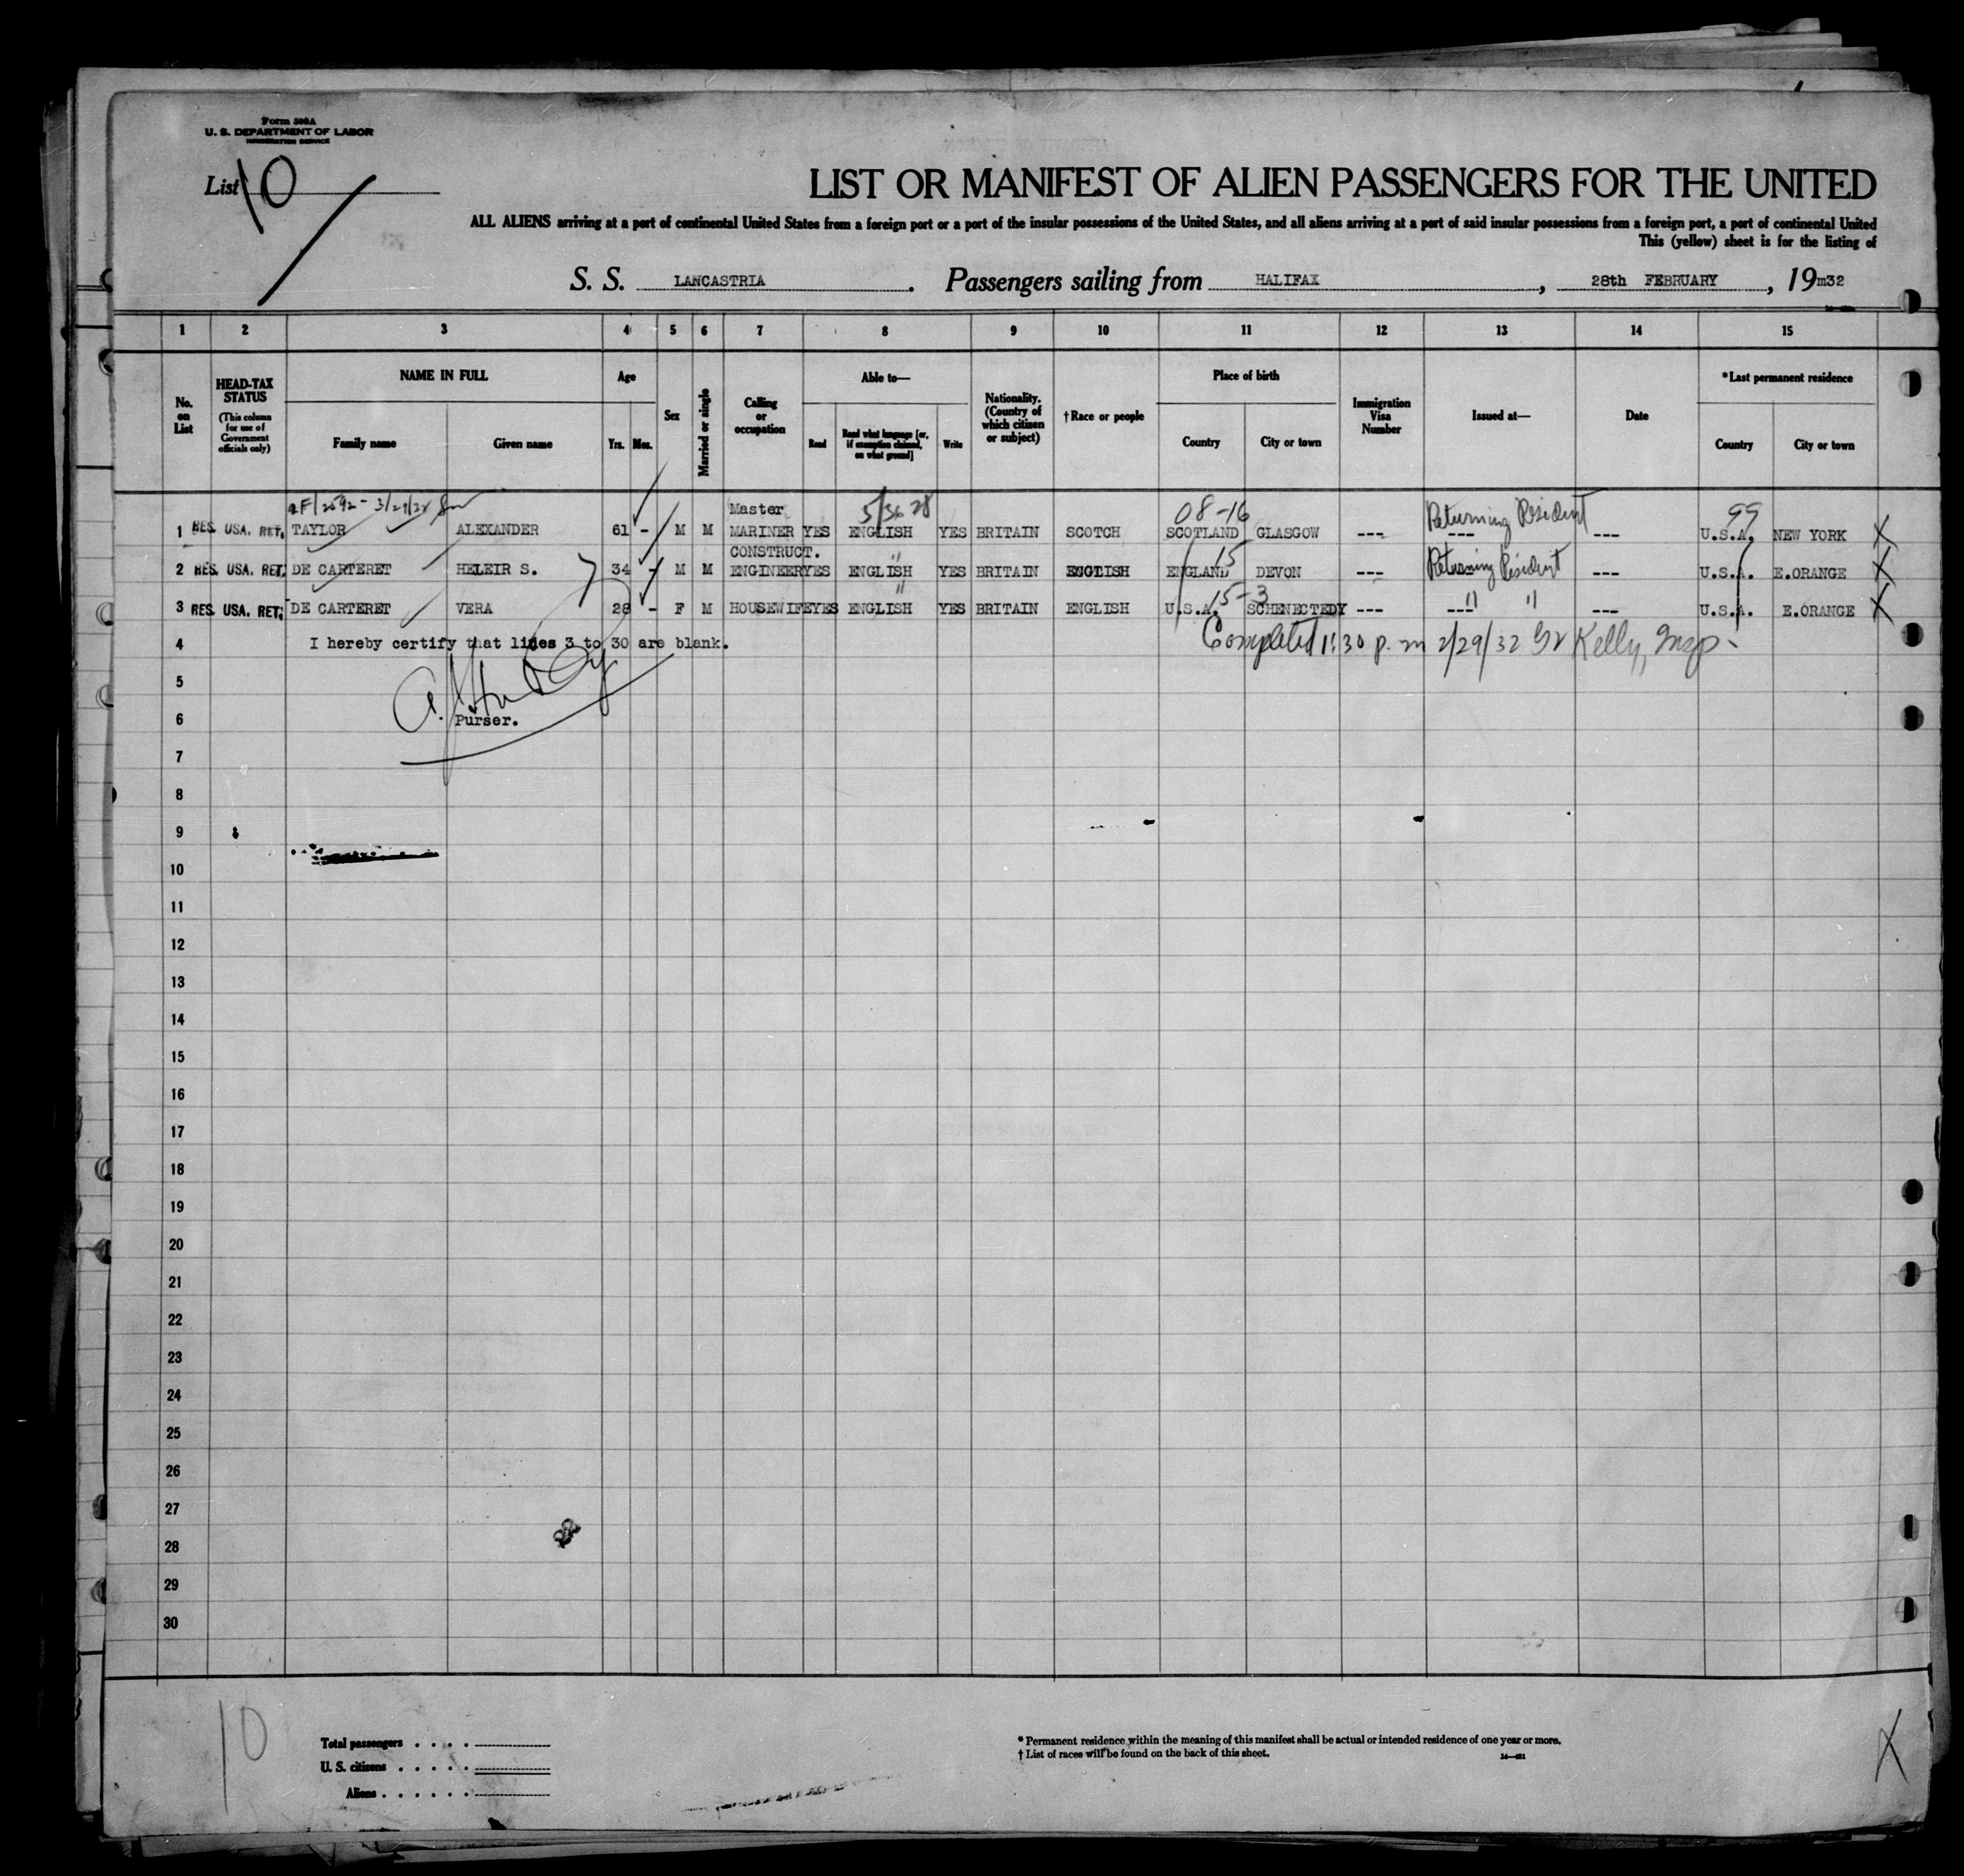 Form 500A
U. S. DEPARTMENT OF LABOR
IMMIGRATION SERVICE
List 10
LIST OR MANIFEST OF ALIEN PASSENGERS FOR THE UNITED
ALL ALIENS arriving at a port of continental United States from a foreign port or a port of the insular possessions of the United States, and all aliens arriving at a port of said insular possessions from a foreign port, a port of continental United
This (yellow) sheet is for the listing of
S. S. LANCASTRIA . Passengers sailing from HALIFAX , 28th FEBRUARY , 19m32
1 2 3 4 5 6 7 8 9 10 11 12 13 14 15
No. on List
HEAD-TAX STATUS (This column for use of Government officials only)
NAME IN FULL
Family name Given name
Age
Yrs. Mos.
Sex
Married or single
Calling or occupation
Able to—
Read Read what language [or, if exemption claimed, on what ground] Write
Nationality. (Country of which citizen or subject)
†Race or people
Place of birth
Country City or town
Immigration Visa Number
Issued at—
Date
*Last permanent residence
Country City or town
2F/2592 - 3/29/32 Master 5/36 28 08-16 Returning Resident 99
1 RES. USA. RET. TAYLOR ALEXANDER 61 - M M MARINER YES ENGLISH YES BRITAIN SCOTCH SCOTLAND GLASGOW --- --- --- U.S.A. NEW YORK X
CONSTRUCT. " 15 Returning Resident
2 RES. USA. RET. DE CARTERET HELEIR S. 34 - M M ENGINEER YES ENGLISH YES BRITAIN ENGLISH ENGLAND DEVON --- --- U.S.A. E.ORANGE X
" 15-3 " "
3 RES. USA. RET. DE CARTERET VERA 28 - F M HOUSEWIFE YES ENGLISH YES BRITAIN ENGLISH U.S.A. SCHENECTEDY --- --- --- U.S.A. E.ORANGE X
4 I hereby certify that lines 3 to 30 are blank. Completed 1:30 p.m 2/29/32 Kelly, Insp.
5
6 Purser.
7
8
9
10
11
12
13
14
15
16
17
18
19
20
21
22
23
24
25
26
27
28
29
30
10
Total passengers . . . .
U. S. citizens . . . . .
Aliens . . . . . .
* Permanent residence within the meaning of this manifest shall be actual or intended residence of one year or more.
† List of races will be found on the back of this sheet.
X